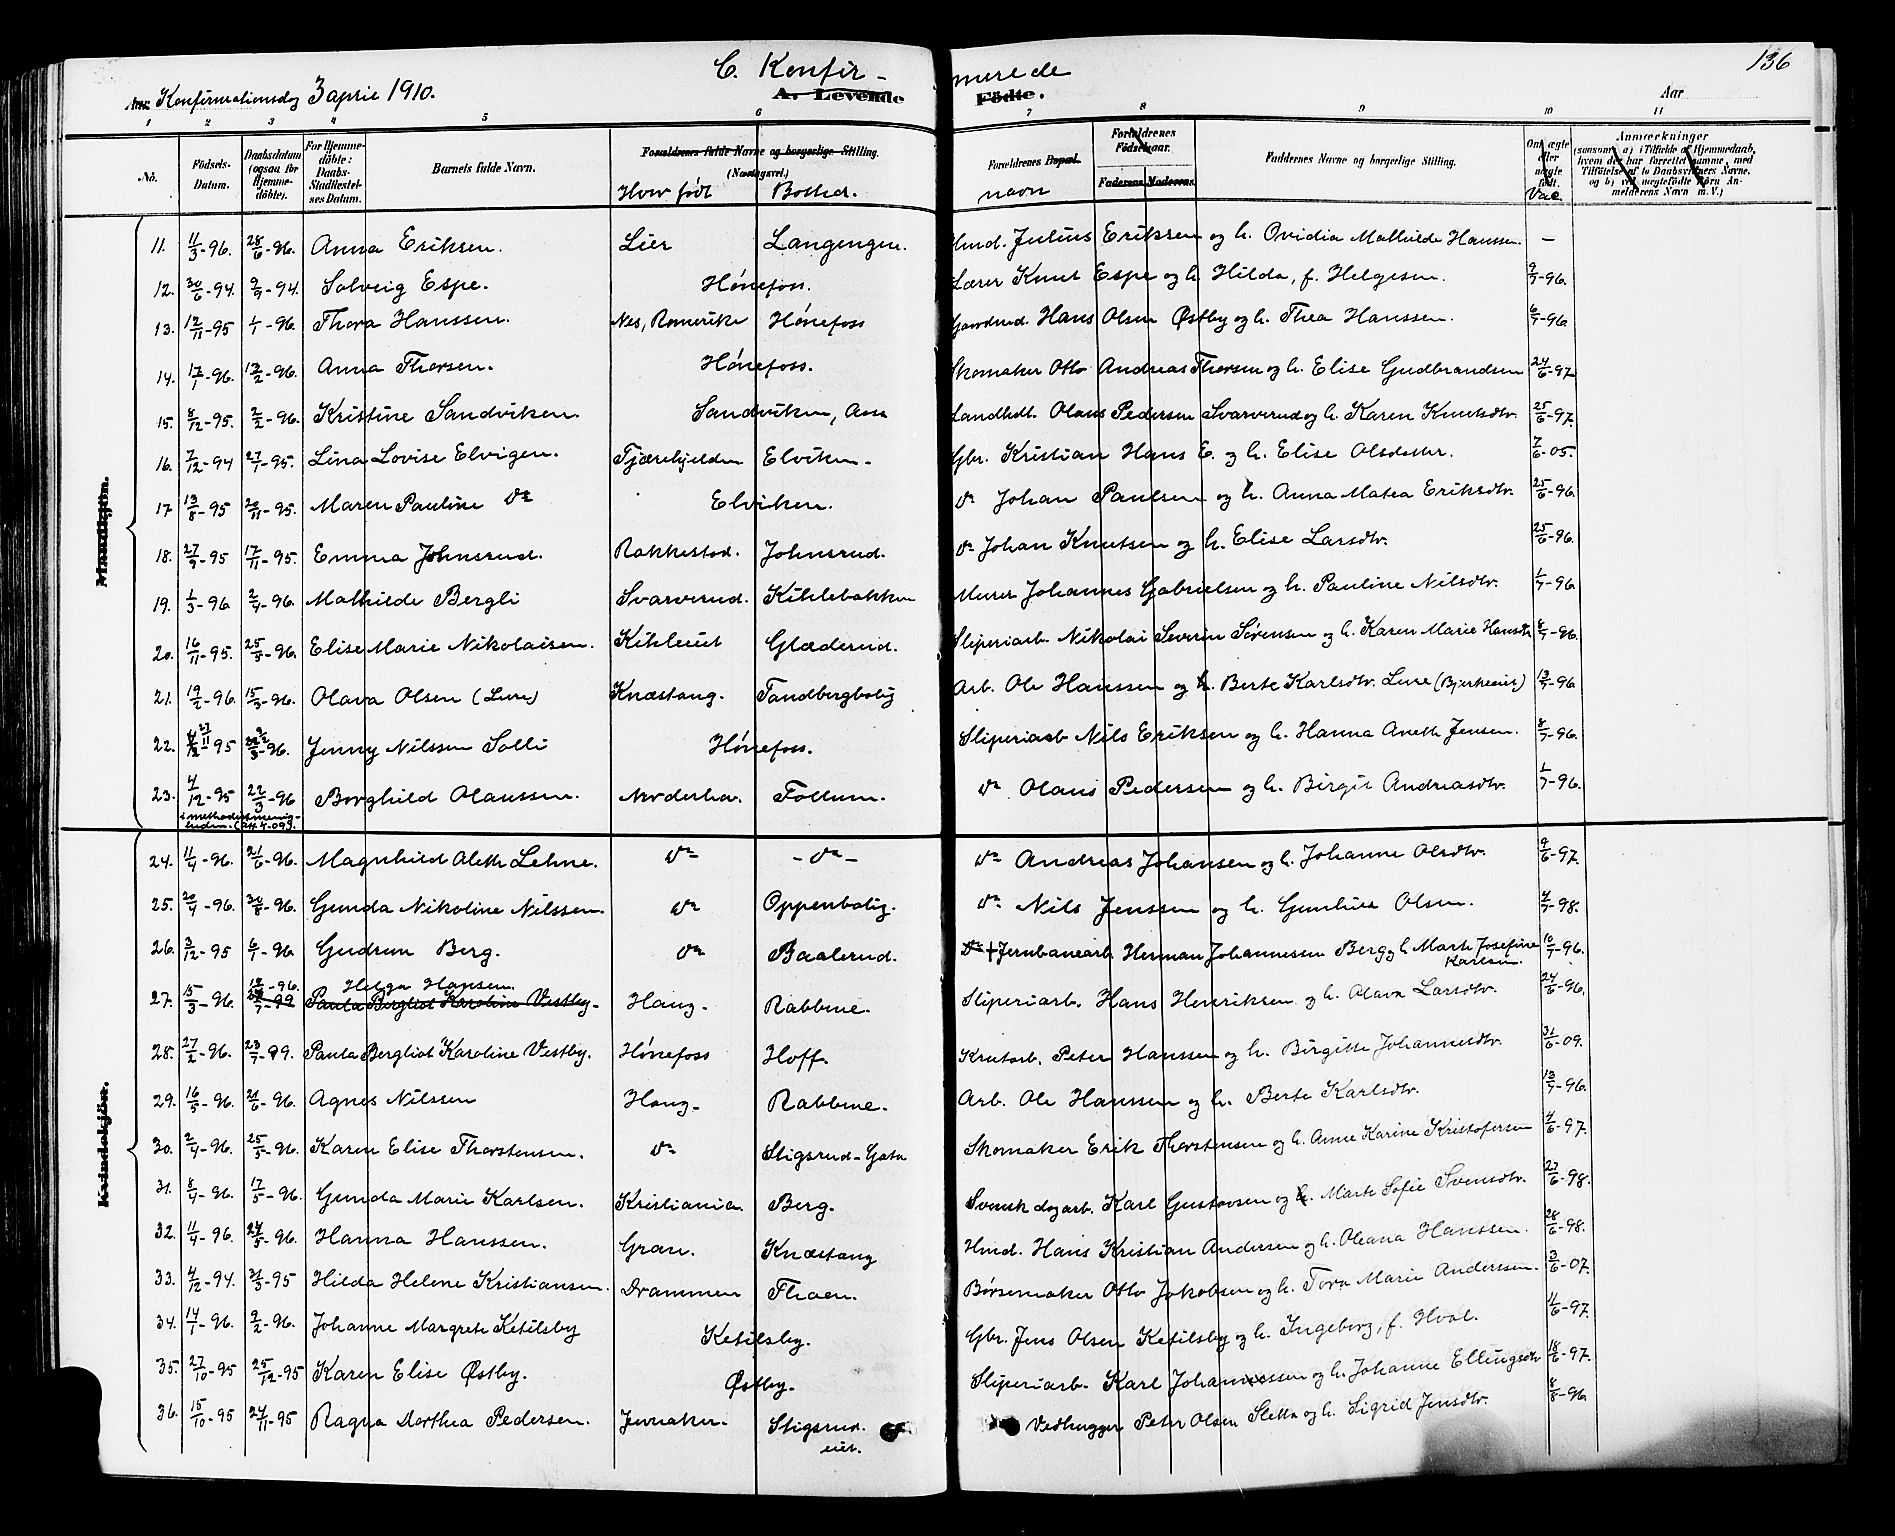 136
C. Konfir - merede
Aar Konfirmationsdag 3 april 1910.
A. Levende Födte.
Aar
1 2 3 4 5 6 7 8 9 10 11
No.
Födsels-Datum.
Daabsdatum (ogsaa for Hjemme-döbte).
For Hjemme-döbte: Daabs-Stadfæstel-ses Datum.
Barnets fulde Navn.
Forældrenes fulde Navne og borgerlige Stilling.
(Næringsvei.)
Hvor født
Bosted.
Forældrenes Bopæl.
navn
Forældrenes Födselsaar.
Faderens. Moderens.
Faddernes Navne og borgerlige Stilling.
Om ægte eller uægte födt.
Vac.
Anmærkninger
(saasom: a) i Tilfælde af Hjemmedaab, hvem der har forrettet samme, med Tilföielse af to Daabsvidners Navne, og b) ved uægtefödte Börn Anmelderens Navn m. V.)
Mandkjön.
11. 11/3-96. 28/6-96. Anna Eriksen. Lier Langengen. Hmd. Julius Eriksen og h. Ovidia Mathilde Hanssen. –
12. 30/6-94. 9/9-94. Solveig Espe. Hónefoss. Lærer Knut Espe og h. Hilda, f. Helgesen. 9/7-96.
13. 12/11-95 1/1-96. Thora Hanssen. Nes, Romerike Hónefoss Gaardmd. Hans Olsen Østby og h. Thea Hanssen. 6/7-96
14. 17/1-96. 13/2-96. Anna Thorsen. Hónefoss. Skomaker Otto Andreas Thorsen og h. Elise Gudbrandsen 24/6-97
15. 8/12-95. 2/2-96. Kristine Sandviken. Sandviken, Aasa Landhdl. Olaus Pedersen Svarverud og h. Karen Knutsdtr. 25/6-97.
16. 7/12-94 27/1-95. Lina Lovise Elvigen. Tjærehjelden Elviken- Gbr. Kristian Hans E. og h. Elise Olsdatter. 7/6-05.
17 13/8-95 20/11-95. Maren Pauline do Elviken. do Johan Paulsen og h. Anna Matea Eriksdtr. 25/6-96.
18. 27/9-95 17/11-95. Emma Johnsrud. Rakkestad. Johnsrud. do Johan Knutsen og h. Elise Larsdtr. 25/6-96.
19. 1/3-96 2/4-96. Mathilde Bergli Svarverud. Kihlebakken Murer Johannes Gabrielsen og h. Pauline Nilsdtr. 1/7-96.
20. 16/11-95. 25/3-96. Elise Marie Nikolaisen. Kihleeiet Glæderud. Sliperiarb. Nikolai Severin Sørensen og h. Karen Marie Hansdtr 8/7-96.
21. 19/2-96. 15/3-96. Olava Olsen (Lure) Knæstang. Tandbergbolig Arb. Ole Hanssen og h. Berte Karlsdtr. Lure (Bjerkeeiet) 13/7-96
22. 27/11-95 22/3-96. Jenny Nilssen Solli Hónefoss. Sliperiarb Nils Eriksen og h. Hanna Aneth Jensen. 8/7-96.
23. 4/12-95 22/3-96 Borghild Olaussen. Norderhov. Follum. do Olaus Pedersen og h. Birgit Andreasdtr. 1/7-96.
i methodistmenig-heden. (24.4.09).
Kvindekjön.
24. 11/4-96. 21/6-96. Magnhild Aleth Lehne. do – do – do Andreas Johansen og h. Johanne Olsdtr. 9/6-97.
25. 20/4-96. 30/8-96. Gunda Nikoline Nilssen. do Oppenbolig. do Nils Jenssen og h. Gunhild Olsen. 4/7-98.
26. 3/12-95 6/1-96 Gudrun Berg. do Baalerud. do + Jernbanearb. Herman Johannesen Berg og h. Marte Josefine Karlsen. 10/7-96.
27. 15/3-96. 12/7-96. 23/7-99 Helga Hansen. Paula Bergliot Karoline Vestby- Haug- Rabbene. Sliperiarb. Hans Henriksen og h. Olava Larsdtr. 24/6-96.
28. 27/2-96. 23/7-99. Paula Bergliot Karoline Vestby. Hónefoss Hoff. Krutarb. Peter Hanssen og h. Birgitte Johannesdtr. 31/6-09.
29. 16/5-96. 21/6-96. Agnes Nilssen Haug- Rabbene. Arb. Ole Hanssen og h. Berte Karlsdtr. 13/7-96.
30. 2/4-96. 25/5-96. Karen Elise Thorstensen. do Stigsrud-Gata Skomaker Erik Thorstensen og h. Anne Karine Kristofersen 4/6-97.
31. 8/4-96. 17/5-96. Gunda Marie Karlsen. Kristiania Berg. Svensk dagarb. Karl Gustavsen og h. Marte Sofie Svensdtr. 27/6-98.
32. 11/4-96. 24/5-96. Hanna Hanssen. Gran. Knæstang Hmd. Hans Kristian Andersen og h. Oleana Hanssen. 28/6-98.
33. 4/12-94. 31/3-95 Hilda Helene Kristiansen. Drammen Thoen. Børsemaker Otto Jakobsen og h. Tora Marie Anderssen. 3/6-07.
34. 14/1-96. 9/2-96. Johanne Margrete Ketilsby Ketilsby. Gbr. Jens Olsen Ketilsby og h. Ingeborg, f. Hval. 11/6-97.
35. 27/10-95 25/12-95 Karen Elise Østby. Østby. Sliperiarb. Karl Johannessen og h. Johanne Ellingsdtr 18/6-97.
36. 15/10-95 24/11-95 Ragna Marthea Pedersen. Jevnaker. Stigsrud-eiet. Vedhugger Peter Olsen Sletta og h. Sigrid Jensdtr. 8/8-96.